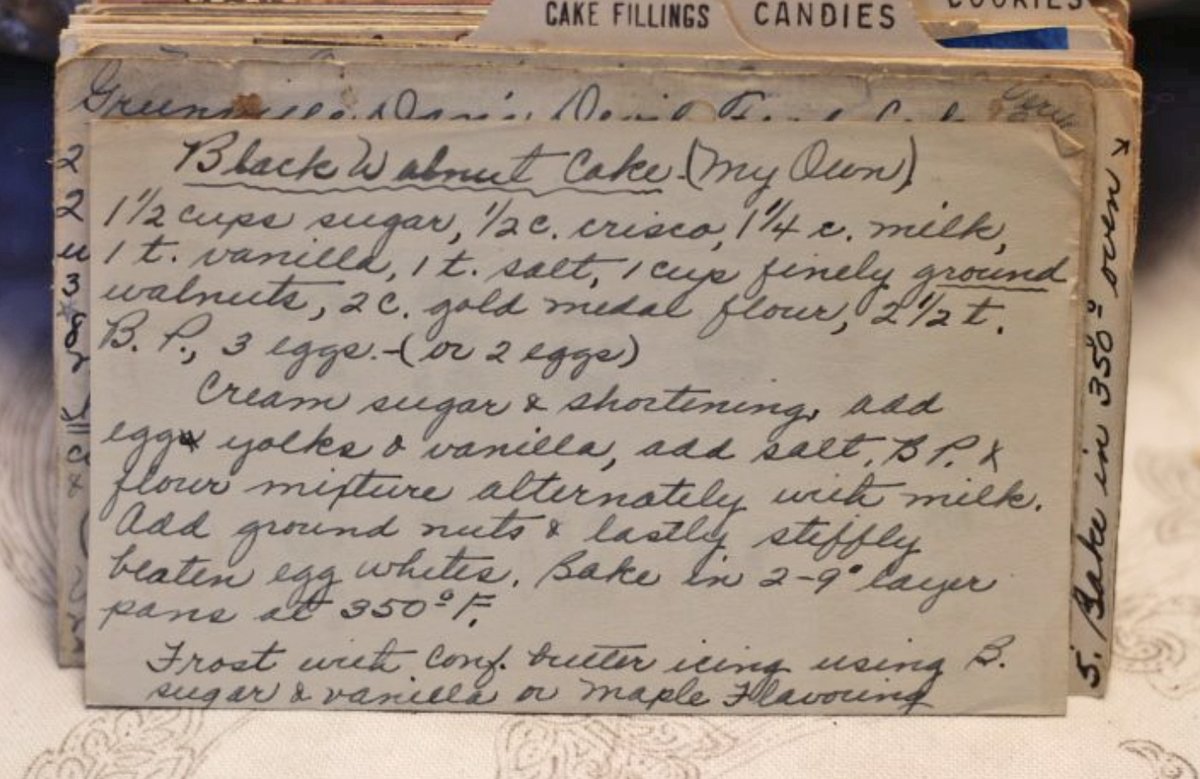 CAKE FILLINGS
CANDIES
COOKIES
Devil Food
Black Walnut Cake (My Own)
1 1/2 cups sugar, 1/2 c. crisco, 1 1/4 c. milk,
1 t. vanilla, 1 t. salt, 1 cup finely ground
walnuts, 2 c. gold medal flour, 2 1/2 t.
B. P., 3 eggs. - (or 2 eggs)
Cream sugar & shortening, add
egg yolks & vanilla, add salt, B P. &
flour mixture alternately with milk.
Add ground nuts & lastly stiffly
beaten egg whites. Bake in 2-9" layer
pans at 350° F.
Frost with Conf. butter icing using B.
sugar & vanilla or Maple Flavouring
5. Bake in 350° oven
2
2
3